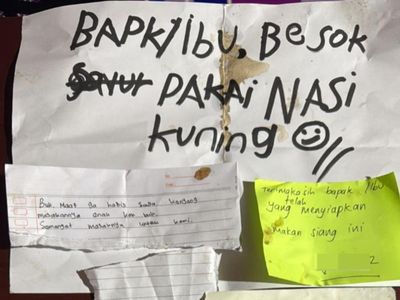 BAPK/IBU, BESOK
PAKAI NASI
kuning
Buk, Maaf ga habis
masakannya enak kok buk.
Semangat masaknya untuk kami.
Terimakasih bapak /Ibu
telah
yang menyiapkan
makan siang ini
2